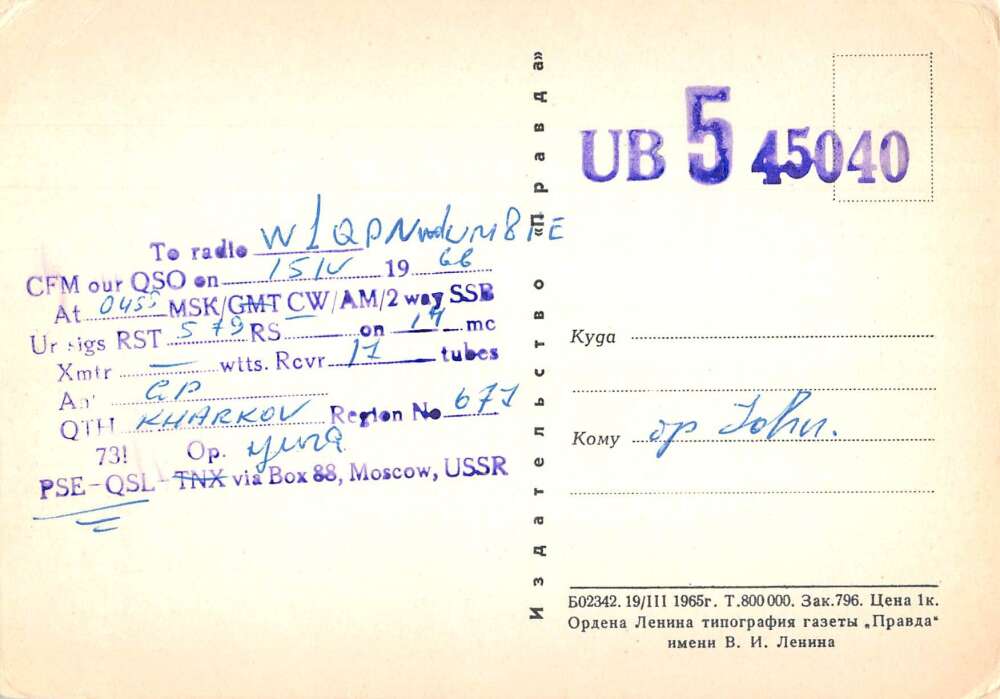 To radio W1QPN
CFM our QSO on 15 IV 1966
At 0455 MSK/GMT CW/AM/2 way SSB
Ur sigs RST 579 RS on 14 mc
Xmtr — wtts. Rcvr 11 tubes
Ant GP
QTH KHARKOV Region No 677
73! Op. Yura
PSE-QSL-TNX via Box 88, Moscow, USSR
Издательство «Правда»
UB 5 45040
Куда
Кому op John.
Б02342. 19/III 1965г. Т.800 000. Зак.796. Цена 1к.
Ордена Ленина типография газеты „Правда“
имени В. И. Ленина